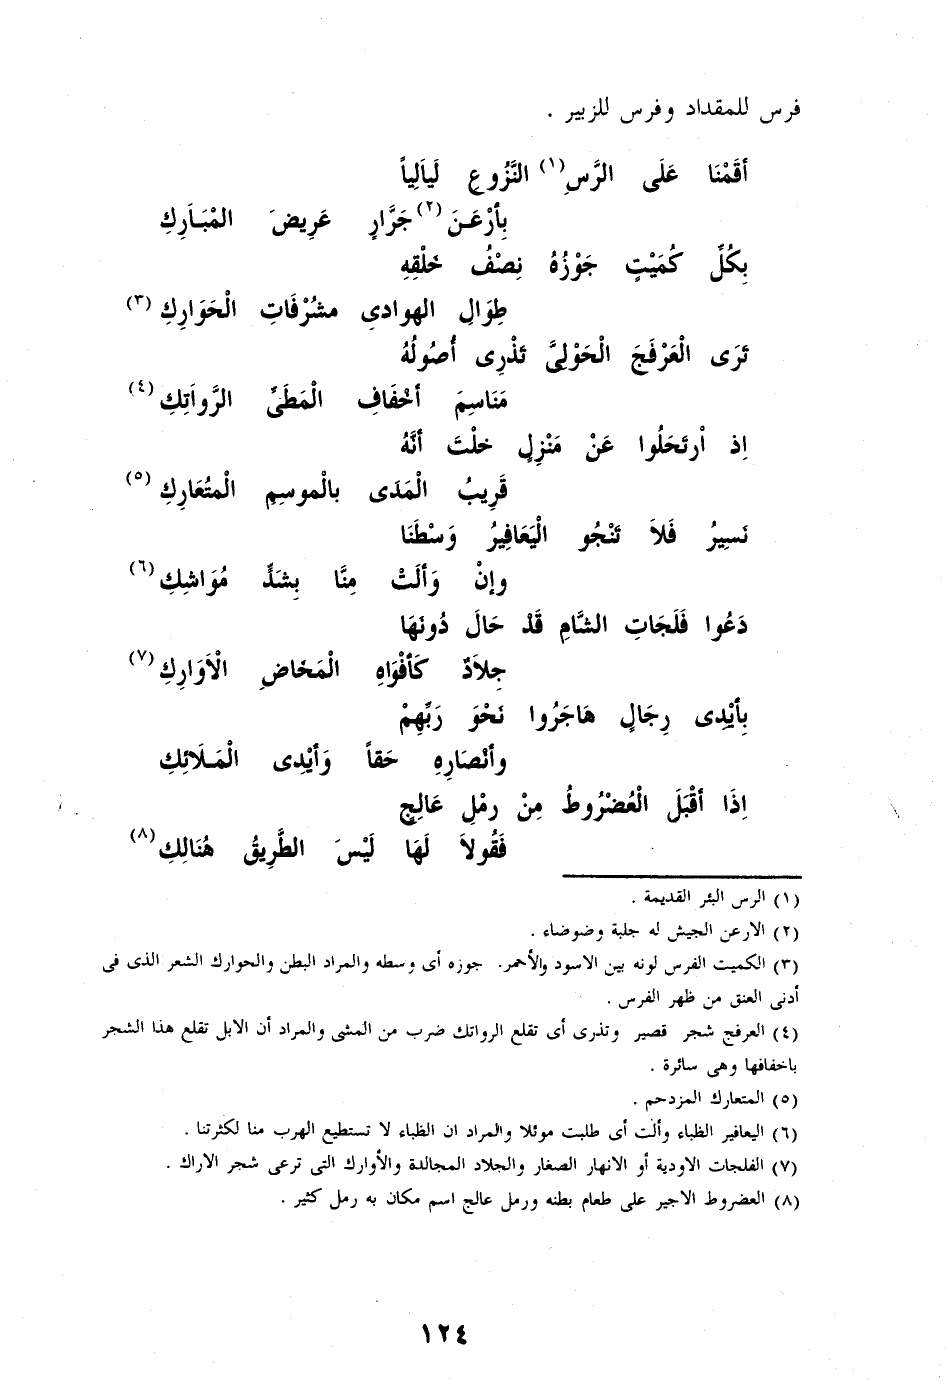 فرس للمقداد وفرس للزبير .
أقَمْنَا عَلَى الرَّسِ(١) النَّزُوعِ لَيَالِياً
بِأرْعَـنَ(٢) جَرَّارٍ عَرِيضَ المْبَـاَرِكِ
بِكُلِّ كُمَيْتٍ جَوْزُهُ نِصْفُ خَلْقِهِ
طِوَالِ الهوادى مشْرُفَاتِ الْحَوَارِكِ (٣)
تَرَى الْعَرْفَجَ الْحَوْلِىَّ تَذْرِى أُصُولُهُ
مَنَاسِمَ أخْفَافِ الْمَطَىِّ الرَّواَتِكِ (٤)
اِذ اْرتَحَلُوا عَنْ مَنْزِلٍ خلْتَ أنَّهُ
قَرِيبُ الْمَدَى بالْموسِمِ الْمتُعَارِكِ (٥)
نَسِيرُ فَلاَ تَنْجُو الْيَعَافِيرُ وَسْطَنَا
وإنْ وَألَتْ مِنَّا بِشَدٍّ مُوَاشِكِ (٦)
دَعُوا فَلَجَاتِ الشَّامِ قَدْ حَالَ دُونَهَا
جِلاَدٌ كَأفْوَاهِ الْمَخَاضِ الْأَوَارِكِ (٧)
بِأيْدِى رِجَالٍ هَاجَرُوا نَحْوَ رَبِّهِمْ
وأنْصَارِهِ حَقاً وَأيْدِى الْمَـلَائِكِ
اِذَا أقْبَلَ الْعُضْرُوطُ مِنْ رمْلِ عَالِجٍ
فَقُولاَ لَهَا لَيْسَ الطَّرِيقُ هُنَالِكِ (٨)
(١) الرس البئر القديمة .
(٢) الارعن الجيش له جلبة وضوضاء .
(٣) الكميت الفرس لونه بين الاسود والأحمر. جوزه أى وسطه والمراد البطن والحوارك الشعر الذى فى
أدنى العنق من ظهر الفرس .
(٤) العرفج شجر قصير وتذرى أى تقلع الرواتك ضرب من المشى والمراد أن الابل تقلع هذا الشجر
باخفافها وهى سائرة .
(٥) المتعارك المزدحم .
(٦) اليعافير الظباء وألت أى طلبت موئلا والمراد ان الظباء لا تستطيع الهرب منا لكثرتنا .
(٧) الفلجات الاودية أو الانهار الصغار والجلاد المجالدة والأوارك التى ترعى شجر الاراك .
(٨) العضروط الاجير على طعام بطنه ورمل عالج اسم مكان به رمل كثير .
١٢٤